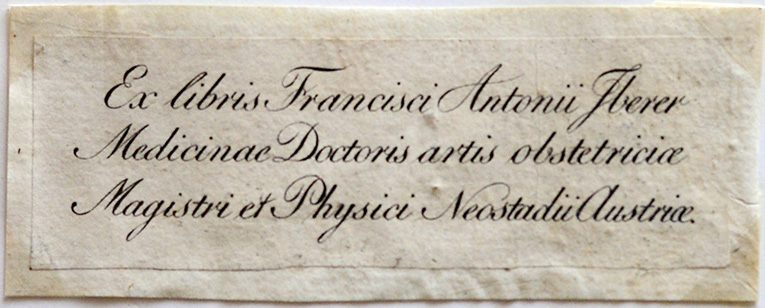 Ex libris Francisci Antonii Jberer
Medicinae Doctoris artis obstetriciæ
Magistri et Physici Neostadii Austriæ.